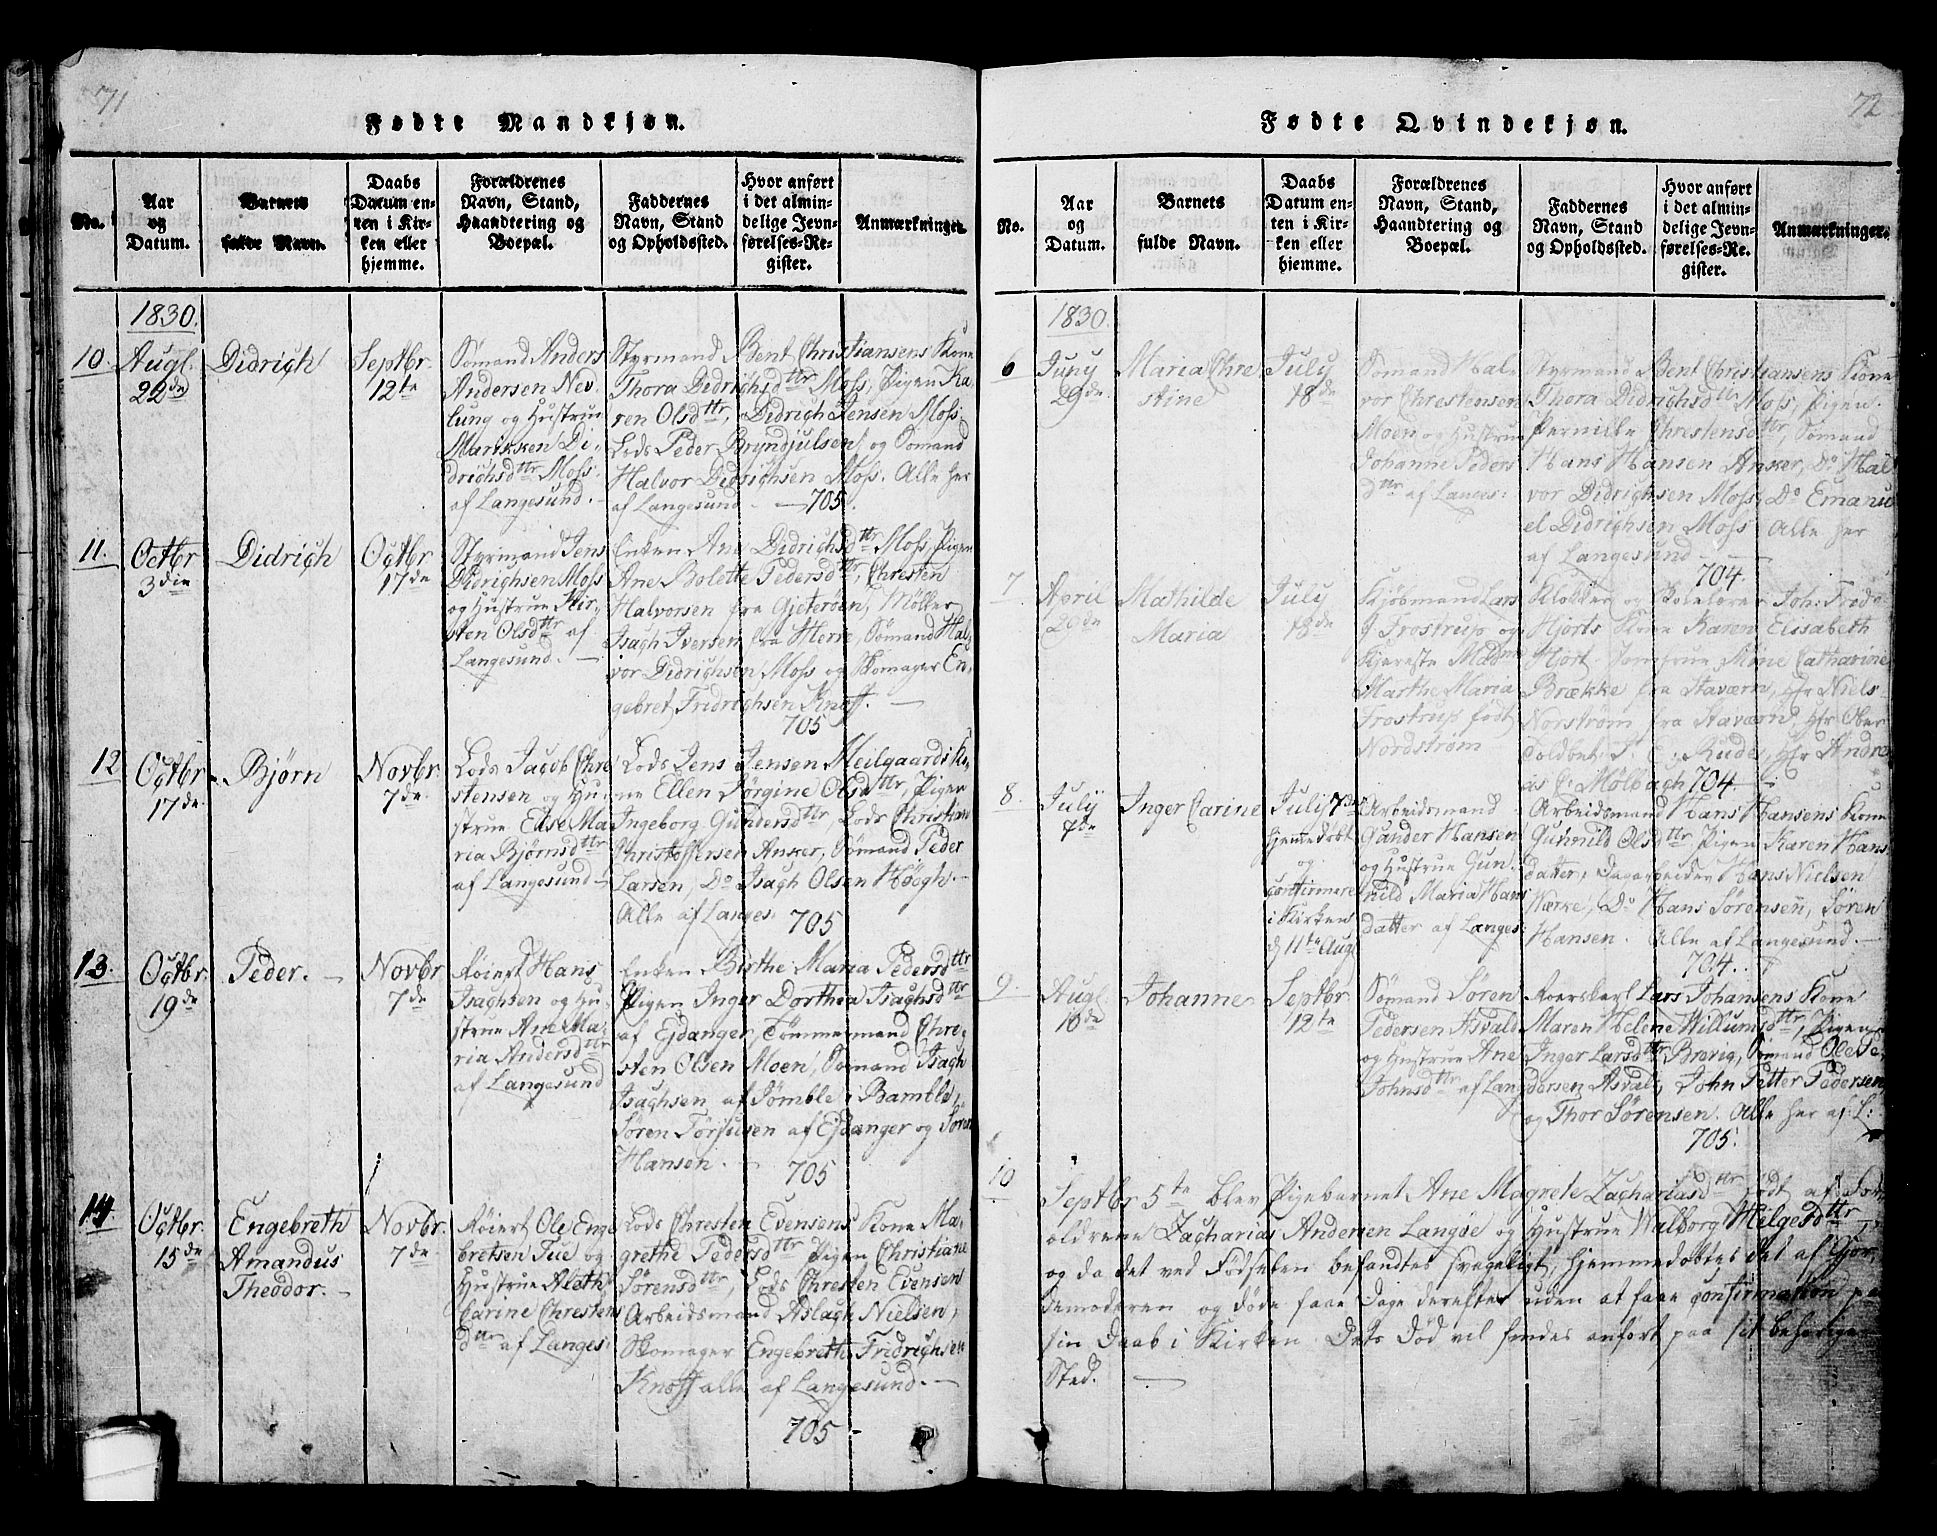 71
Fødte Mandkjøn.
No.
Aar
og
Datum.
Barnets
fulde Navn.
Daabs
Datum en-
ten i Kir-
ken eller
hjemme.
Forældrenes
Navn, Stand,
Haandtering og
Boepæl.
Faddernes
Navn, Stand
og Opholdssted.
Hvor anført
i det almin-
delige Jevn-
førelses-Re-
gister.
Anmærkninger.
1830.
10.
Augl.
22de
Didrich
Septbr
12te
Sømand Anders
Andersen Nev
lung og Hustrue
Marikken Di-
drichsdttr Moss.
af Langesund.
Styrmand Bent Christiansens Kone
Thora Didrichsdttr Moss, Pigen Ka
ren Olsdttr, Didrich Jensen Moss.
Lods Peder Bryndjulsen og Sømand
Halvor Didrichsen Moss. Alle her
af Langesund. — 705.
11.
Octbr
3die
Didrich
Octbr
17de
Styrmand Jens
Didrichsen Moss
og Hustrue Kir-
sten Olsdttr af
Langesund. —
Enken Ane Didrichsdttr Moss, Pigen
Ane Bolette Pedersdttr, Christen
Halvorsen fra Gjeterøen, Møller
Isach Iversen fra Herre, Sømand Hal-
vor Didrichsen Moss og Skomager En-
gebret Fridrichsen Knoff. —
705
12
Octbr
17de
Bjørn
Novbr.
7de
Lods Jacob Chre
stensen og Hu-
strue Else Ma
ria Bjørnsdttr
af Langesund —
Lods Jens Jensen Meilgaards Ko-
ne Ellen Jørgine Olsdttr, Pigen
Ingeborg Gundersdttr, Lods Christian
Christoffersen Anker, Sømand Peder
Larsen, Do Isach Olsen Høegh. —
Alle af Langes: 705
13.
Octbr.
19de
Peder. —
Novbr
7de
Røiert Hans
Isachsen og Hu-
strue Ane Ma-
ria Andersdttr
af Langesund
Enken Birthe Maria Pedersdttr
Pigen Inger Dorthea Isachsdttr
af Eidanger, Tømmermand Chre-
sten Olsen Moen, Sømand Isach
Isachsen af Tømble i Bamble,
Søren Torjusen af Eidanger og Søren
Hansen. — 705
14.
Octbr.
15de
Engebreth
Amandus
Theodor. —
Novbr.
7de
Røiert Ole Enge
bretsen Tue og
Hustrue Aleth
Carine Chrestens
dttr af Langes:
Lods Chresten Evensens Kone Ma-
grethe Pedersdttr, Pigen Christiane
Sørensdttr, Lods Chresten Evensen
Arbeidsmand Aslach Nielsen,
Skomager Engebreth Fridrichsen
Knoff alle af Langesund. —
705 -
72
Fødte Qvindekjøn.
No.
Aar
og
Datum.
Barnets
fulde Navn.
Daabs
Datum en-
ten i Kir-
ken eller
hjemme.
Forældrenes
Navn, Stand,
Haandtering og
Boepæl.
Faddernes
Navn, Stand
og Opholdssted.
Hvor anført
i det almin-
delige Jevn-
førelses-Re-
gister.
Anmærkninger.
1830.
6
Juny
29de
Maria Chre
stine
July
18de
Sømand Hal
vor Chrestensen
Moen og Hustrue
Johanne Peders
dttr af Langes:
Styrmand Bent Christiansens Kone
Thora Didrichsdttr Moss, Pigen
Pernille Chrestensdttr, Sømand
Hans Hansen Anker, Do Hal
vor Didrichsen Moss, Do Emanu
el Didrichsen Moss Alle her
af Langesund —
704.
7.
April
29de
Mathilde
Maria
July
18de
Kjøbmand Lars
J Frostrup og
Kjereste Madme
Marthe Maria
Frostrup født
Nordstrøm
Klokker og Skolelærer Joh: Fride:
Hjorts Kone Karen Elisabeth
Hjort, Jomfrue Mone Catharine
Brække fra Staværn, Hr Niels
Norstrøm fra Staværn, Hr Ober
Toldbet: T. C. Rude, Hr Andre
as C: Mølbach 704 —
8.
July
7de
Inger Carine
July 7de
hjemmedøbt
og
confirmeret
i Kirken
d 11te Aug
Arbeidsmand
Gunder Hansen
og Hustrue Gun
hild Maria Hans
datter af Langes:
Arbeidsmand Hans Hansens Kone
Gunhild Olsdttr Pigen Karen Hans
datter, Dagarbeider Hans Nielsen
Værke, Do Hans Sørensen, Søren
Hansen. Alle af Langesund. —
704.
9.
Augl.
10de
Johanne
Septbr
12te
Sømand Søren
Pedersen Asvald
og Hustrue Ane
Johnsdttr af Lang
Røerskarl Lars Johansens Kone
Maren Helene Willumsdttr, Pigen
Inger Larsdttr Brevig, Sømand Ole Pe-
dersen Asvald, John Petter Pedersen
og Thor Sørensen. Alle her af L:
705.
10
Septbr 5te blev Pigebarnet Ane Magrete Zachariasdttr født af For-
ældrene Zacharias Andersen Langøe og Hustrue Walborg Helgesdttr —
og da det ved Fødselen befandtes svageligt, hjemmedøbtes det af Gjor-
demoderen og døde faae Dage derefter uden at faae confirmation paa
sin Daab i Kirken. Dets Død vil findes anført paa sit behørige
Sted. —